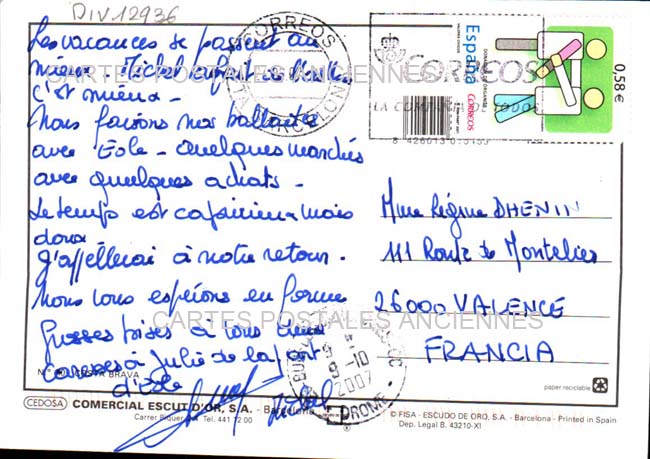 DIV12936
Les vacances se passent au
mieux. Michel
c'est mieux -
Nous faisons nos ballades
avec Eole - Quelques marchés
avec quelques achats -
Le temps est capricieux mais
doux
J'appellerai à notre retour.
Nous vous espérons en forme
Grosses bises à tous deux
caresses à Julie de la part
d'Eole
Michel
CORREOS
BARCELONA
CORREOS
LA COMPAÑIA DE TODOS
España
CORREOS
DONACIÓN DE ORGANOS
0,58€
Mme Régine DHENIN
111 Route de Montelier
26000 VALENCE
FRANCIA
9-10
2007
DROME
CARTES POSTALES ANCIENNES
CARTES POSTALES ANCIENNES
COSTA BRAVA
CEDOSA
COMERCIAL ESCUT D'OR, S.A. - Barcelona
Carrer Biquer Tel. 441 12 00
paper reciclable
© FISA - ESCUDO DE ORO, S.A. - Barcelona - Printed in Spain
Dep. Legal B. 43210-XI